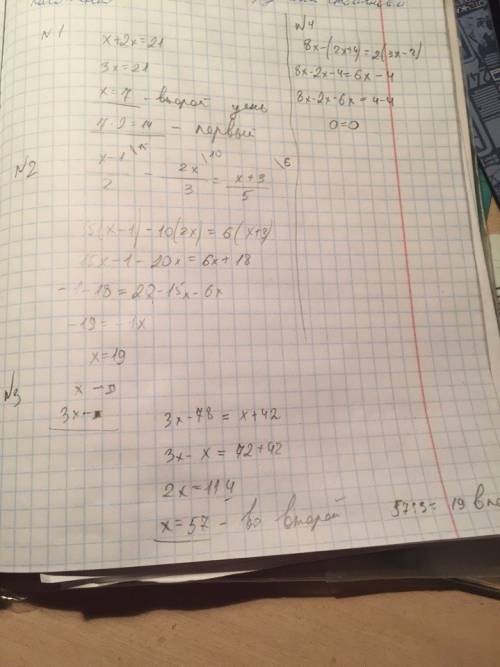 N1
x+2x=21
3x=21
x=7 - второй день
7·2=14 - первый
N2
x-1 \15 / 2 - 2x \10 / 3 = x+3 \6 / 5
15(x-1)-10(2x)=6(x+3)
15x-1-20x=6x+18
-19=-1x
x=19
N3
3x-78=x+42
3x-x=72+42
2x=114
x=57 - во второй
57:3=19
N4
8x-(2x+4)=2(3x-2)
8x-2x-4=6x-4
8x-2x-6x=4-4
0=0